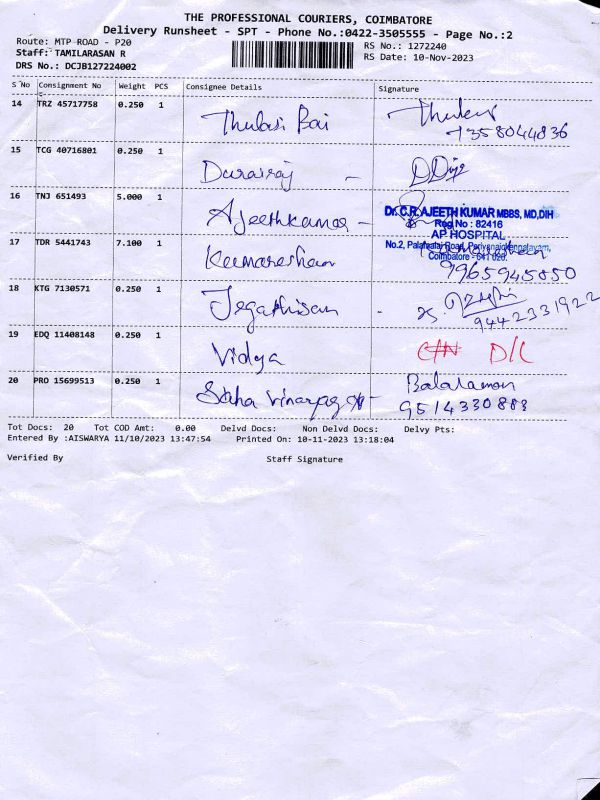 THE PROFESSIONAL COURIERS, COIMBATORE
Delivery Runsheet - SPT - Phone No.:0422-3505555 - Page No.:2
Route: MTP ROAD - P20
RS No.: 1272240
Staff: TAMILARASAN R
RS Date: 10-Nov-2023
DRS No.: DCJB127224002
S No Consignment No Weight PCS Consignee Details Signature
14 TRZ 45717758 0.250 1 Thulasi Bai
7358044836
15 TCG 40716801 0.250 1 Durairaj -
16 TNJ 651493 5.000 1 Ajeethkumar -
Dr. C.R. AJEETH KUMAR MBBS, MD, DIH
Reg No : 82416
AP HOSPITAL
No.2, Palamalai Road, Perianaickenpalayam,
Coimbatore - 641 020.
17 TDR 5441743 7.100 1 Kumareshan
9965945050
18 KTG 7130571 0.250 1 Jegathisan -
9442331922
19 EDQ 11408148 0.250 1 Vidya C/N D/L
20 PRO 15699513 0.250 1 Balaraman
9514330883
Tot Docs: 20 Tot COD Amt: 0.00 Delvd Docs: Non Delvd Docs: Delvy Pts:
Entered By :AISWARYA 11/10/2023 13:47:54 Printed On: 10-11-2023 13:18:04
Verified By Staff Signature